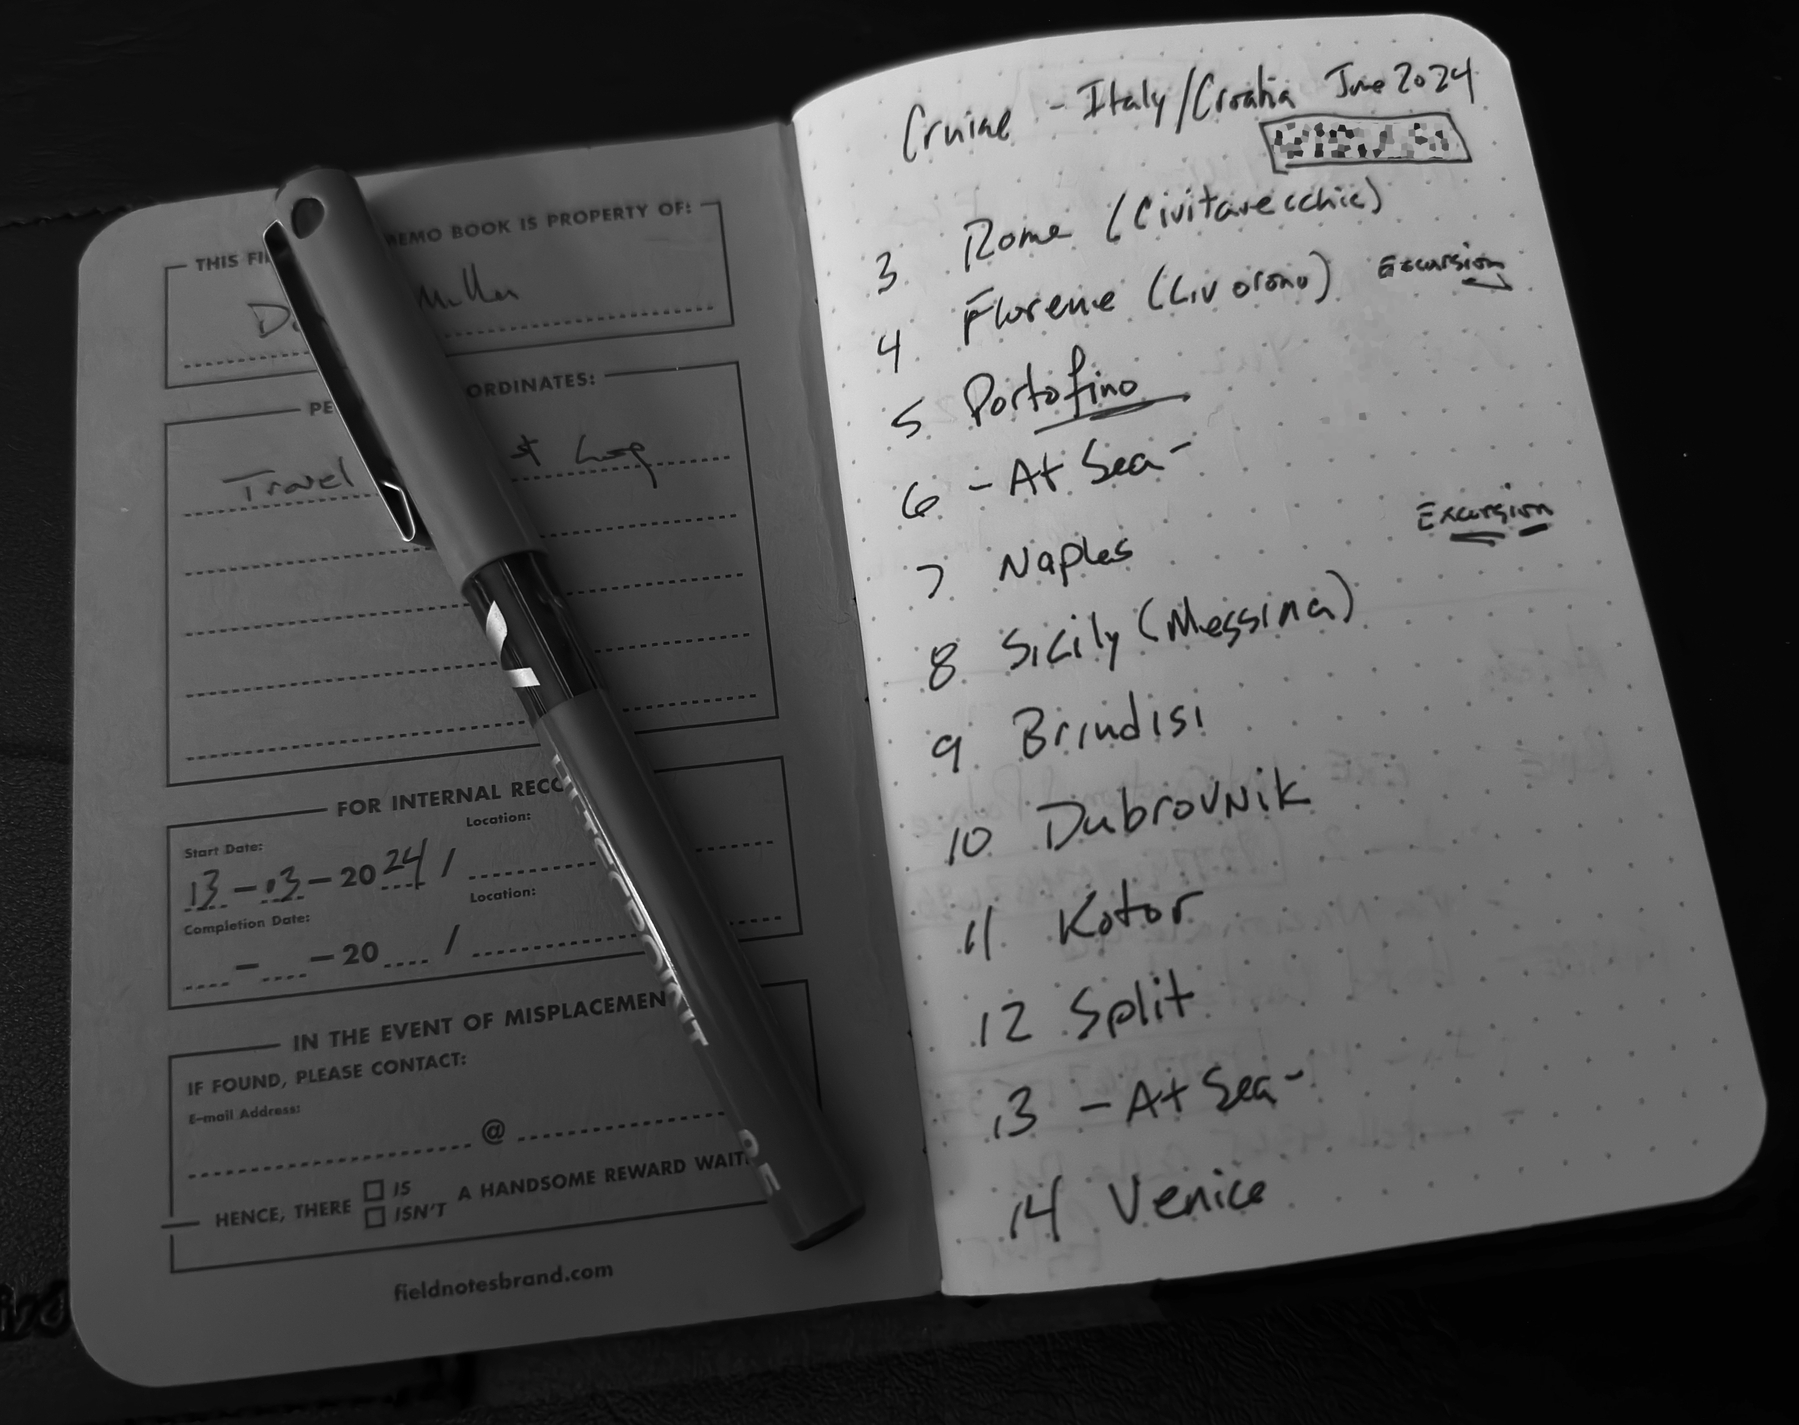 THIS FI MEMO BOOK IS PROPERTY OF:
Miller
PE ORDINATES:
Travel st Log
FOR INTERNAL RECO
Start Date: Location:
13 - 03 - 2024 /
Completion Date: Location:
- - 20 /
IN THE EVENT OF MISPLACEMEN
IF FOUND, PLEASE CONTACT:
E-mail Address:
@
HENCE, THERE IS ISN'T A HANDSOME REWARD WAIT
fieldnotesbrand.com
HI-TECPOINT
0.5
Cruise - Italy/Croatia June 2024
3 Rome (Civitavecchia)
4 Florence (Livorono) Excursion
5 Portofino
6 - At Sea -
7 Naples Excursion
8 Sicily (Messina)
9 Brindisi
10 Dubrovnik
11 Kotor
12 Split
13 - At Sea -
14 Venice